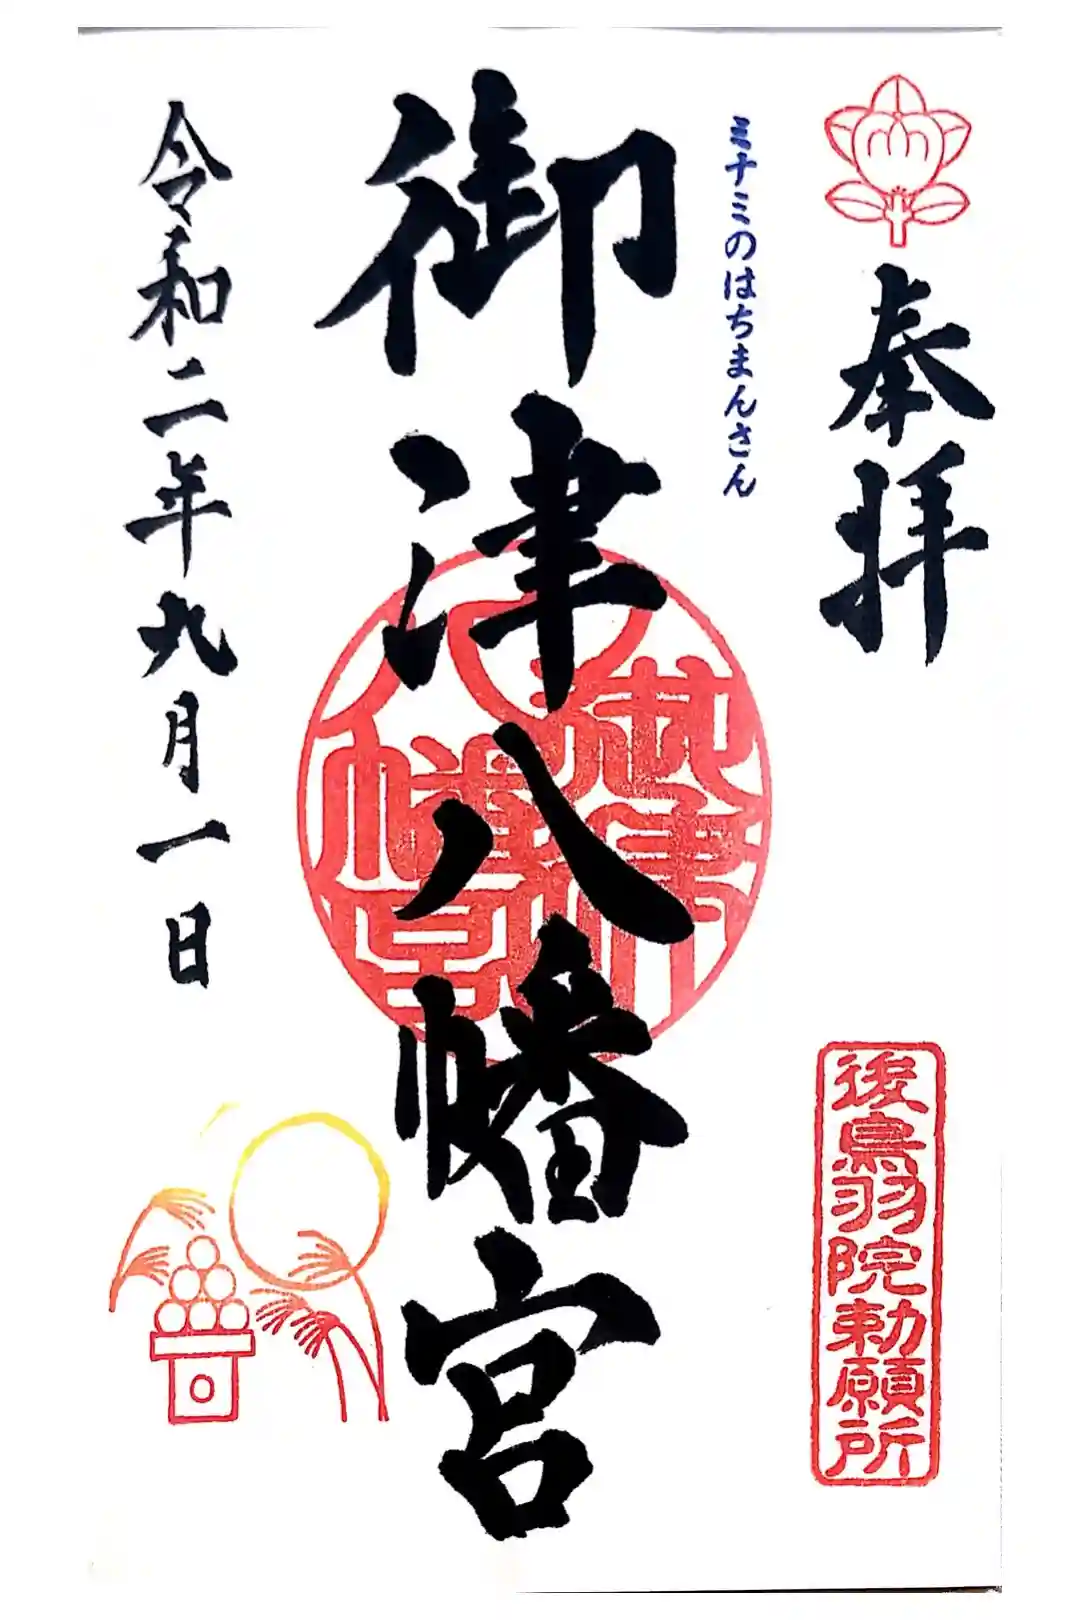 奉拝
後鳥羽院勅願所
ミナミのはちまんさん
御津八幡宮
御津
八幡宮
令和二年九月一日